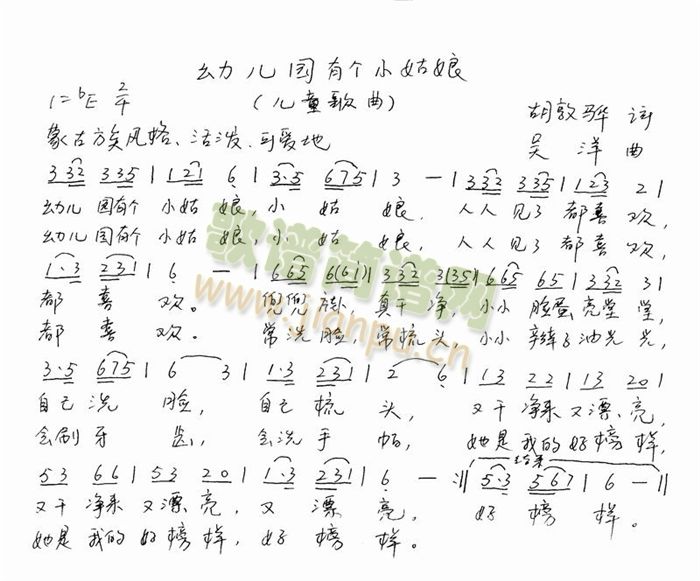 幼儿园有个小姑娘
(儿童歌曲)
1=ᵇE 2/4
胡敦骅 词
吴洋 曲
蒙古族风格、活泼、可爱地
3 32 3 35 | 1 21 6 | 3·5 675 | 3 — | 3 32 3 35 | 1 23 2 |
幼儿园有个 小姑娘, 小姑娘, 人人见了都喜欢,
幼儿园有个 小姑娘, 小姑娘, 人人见了都喜欢,
1·3 231 | 6 — | 6 65 6(61) | 3 32 3(35) | 6 65 65 | 3 32 31 |
都喜欢. 兜兜 真干净, 小小脸蛋亮堂堂,
都喜欢. 常洗脸, 常梳头, 小小辫子油光光,
3·5 675 | 6 3 | 1·3 231 | 2 6 | 13 22 | 13 20 |
自己洗脸, 自己梳头, 又干净来又漂亮,
会刷牙齿, 会洗手帕, 她是我的好榜样,
53 66 | 53 20 | 1·3 231 | 6 — :|| 结束 5·3 567 | 6 — ||
又干净来又漂亮, 又漂亮, 好榜样。
她是我的好榜样, 好榜样。
歌谱简谱网
www.jianpu.cn